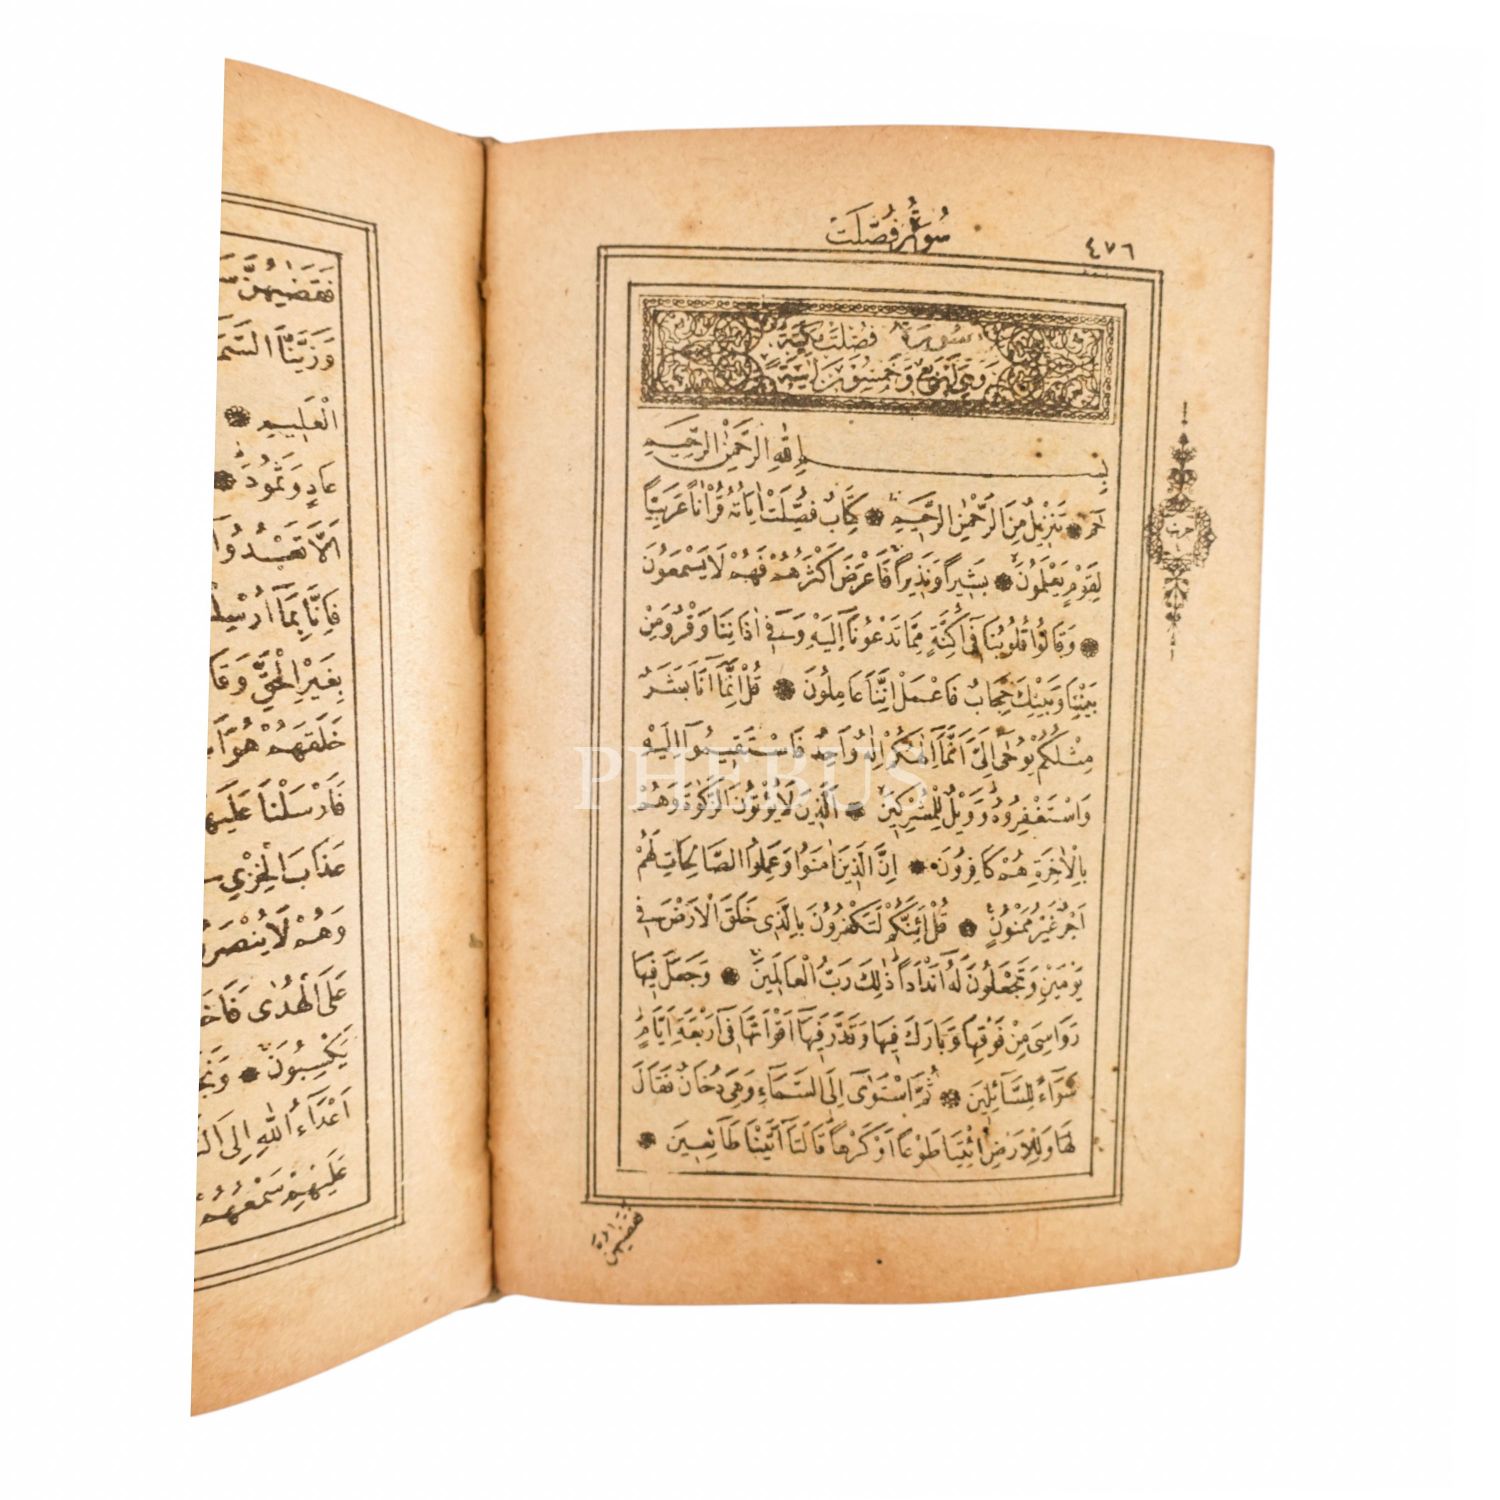 سُورَةُ فُصِّلَتْ
٤٧٦
سورة فصلت مكية
وهي اربع وخمسون اية
بِسْمِ اللّٰهِ الرَّحْمٰنِ الرَّحِيمِ
حٰم تَنْزِيلٌ مِنَ الرَّحْمٰنِ الرَّحِيمِ كِتَابٌ فُصِّلَتْ اٰيَاتُهُ قُرْاٰناً عَرَبِيّاً
لِقَوْمٍ يَعْلَمُونَ بَشِيراً وَنَذِيراً فَاَعْرَضَ اَكْثَرُهُمْ فَهُمْ لَا يَسْمَعُونَ
وَقَالُوا قُلُوبُنَا فِٓى اَكِنَّةٍ مِمَّا تَدْعُونَٓا اِلَيْهِ وَفِٓى اٰذَانِنَا وَقْرٌ وَمِنْ
بَيْنِنَا وَبَيْنِكَ حِجَابٌ فَاعْمَلْ اِنَّنَا عَامِلُونَ قُلْ اِنَّمَٓا اَنَا بَشَرٌ
مِثْلُكُمْ يُوحٰٓى اِلَىَّ اَنَّمَٓا اِلٰهُكُمْ اِلٰهٌ وَاحِدٌ فَاسْتَقِيمُٓوا اِلَيْهِ
وَاسْتَغْفِرُوهُ وَوَيْلٌ لِلْمُشْرِكِينَ اَلَّذِينَ لَا يُؤْتُونَ الزَّكٰوةَ وَهُمْ
بِالْاٰخِرَةِ هُمْ كَافِرُونَ اِنَّ الَّذِينَ اٰمَنُوا وَعَمِلُوا الصَّالِحَاتِ لَهُمْ
اَجْرٌ غَيْرُ مَمْنُونٍ قُلْ اَئِنَّكُمْ لَتَكْفُرُونَ بِالَّذِى خَلَقَ الْاَرْضَ فِى
يَوْمَيْنِ وَتَجْعَلُونَ لَهُٓ اَنْدَاداً ذٰلِكَ رَبُّ الْعَالَمِينَ وَجَعَلَ فِيهَا
رَوَاسِىَ مِنْ فَوْقِهَا وَبَارَكَ فِيهَا وَقَدَّرَ فِيهَٓا اَقْوَاتَهَا فِٓى اَرْبَعَةِ اَيَّامٍ
سَوَٓاءً لِلسَّٓائِلِينَ ثُمَّ اسْتَوٰٓى اِلَى السَّمَٓاءِ وَهِىَ دُخَانٌ فَقَالَ
لَهَا وَلِلْاَرْضِ ائْتِيَا طَوْعاً اَوْ كَرْهاً قَالَتَٓا اَتَيْنَا طَٓائِعِينَ
فَقَضٰيهُنَّ
فَقَضٰيهُنَّ
وَزَيَّنَّا
الْعَلِيمِ
عَادٍ وَثَمُودَ
اَلَّا تَعْبُدُٓوا
فَاِنَّا بِمَٓا
بِغَيْرِ الْحَقِّ
خَلَقَهُمْ هُوَ
فَاَرْسَلْنَا
عَذَابَ الْخِزْىِ
وَهُمْ لَا يُنْصَرُونَ
عَلَى الْهُدٰى
يَكْسِبُونَ
اَعْدَٓاءُ اللّٰهِ اِلَى
عَلَيْهِمْ سَمْعُهُمْ
PHEBUS